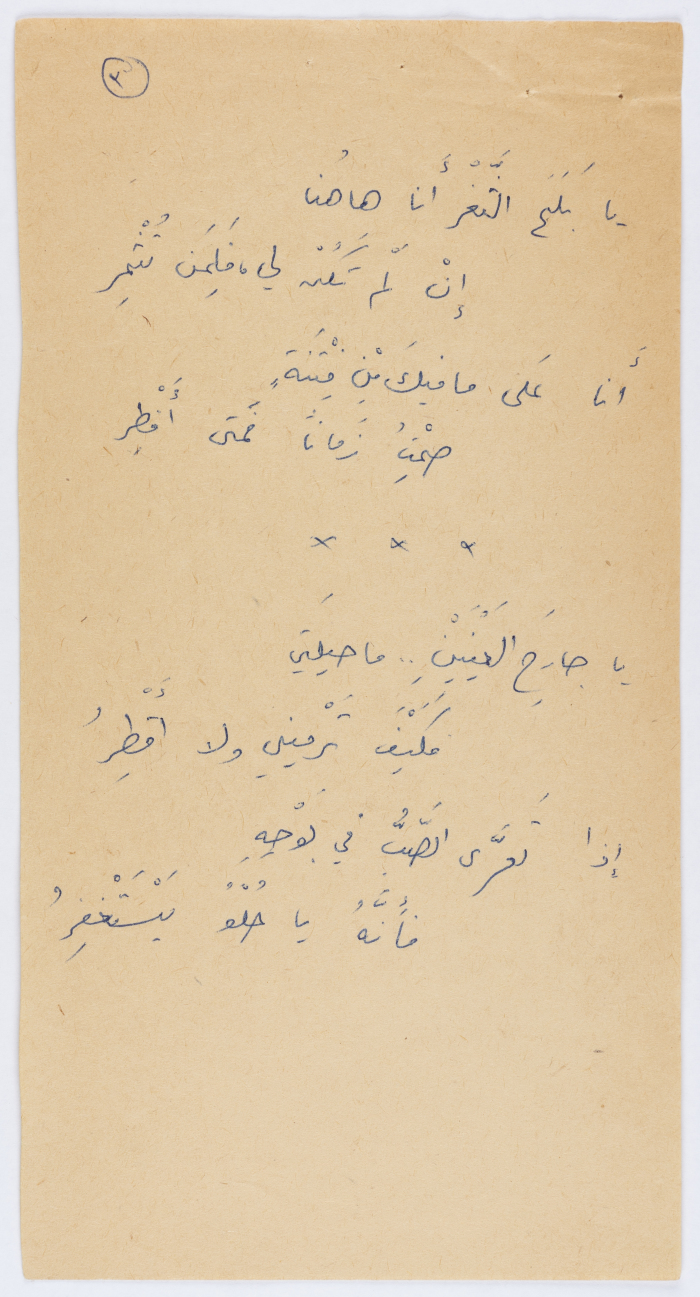 ٣
يا بَلَحَ الثَّغْرِ أَنا هاهُنا
إِنْ لَمْ تَكُنْ لي، فَلِمَن تُثْمِرِ
أَنا عَلى ما فيكَ مِنْ فِتْنَةٍ
صُمْتُ زَماناً فَمَتى أُفْطِرِ
× × ×
يا جارِحَ العَيْنَيْنِ .. ما حيلَتي
فَكَيْفَ تَرْميني ولا أُقْطِرُ
إذا تَعَرَّى الصَّبُّ في بَوْحِهِ
فَأَنَّهُ يا حُلْوُ يَسْتَغْفِرُ